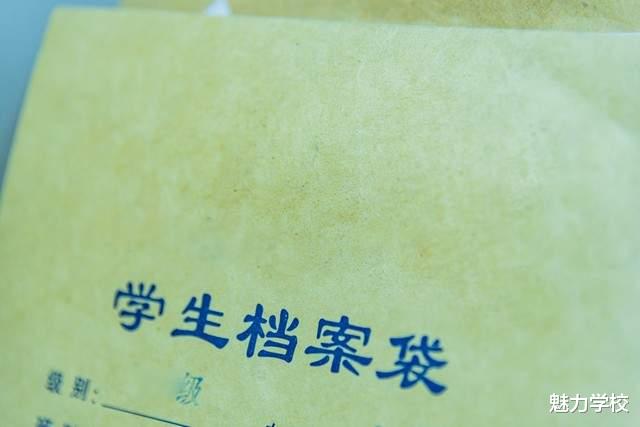 学生档案袋
级别：级
魅力学校